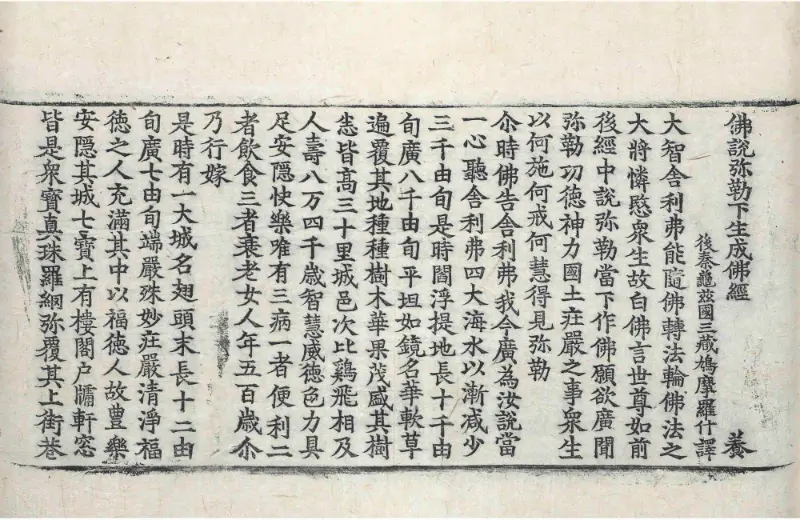 佛說弥勒下生成佛經 養
後秦龜茲國三藏鳩摩羅什譯
大智舍利弗能隨佛轉法輪佛法之
大將憐愍衆生故白佛言世尊如前
後經中說弥勒當下作佛願欲廣聞
弥勒功德神力國土莊嚴之事衆生
以何施何戒何慧得見弥勒
尒時佛告舍利弗我今廣為汝說當
一心聽舍利弗四大海水以漸減少
三千由旬是時閻浮提地長十千由
旬廣八千由旬平坦如鏡名華軟草
遍覆其地種種樹木華果茂盛其樹
悉皆高三十里城邑次比鷄飛相及
人壽八万四千歲智慧威德色力具
足安隱快樂唯有三病一者便利二
者飲食三者衰老女人年五百歲尒
乃行嫁
是時有一大城名翅頭末長十二由
旬廣七由旬端嚴殊妙莊嚴清淨福
德之人充滿其中以福德人故豊樂
安隱其城七寶上有樓閣戶牖軒窓
皆是衆寶真珠羅網弥覆其上街巷